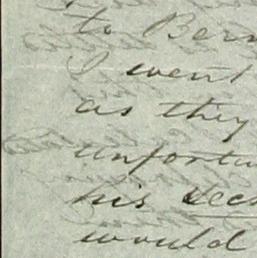 to Bern
I went
as they
unfortu
his
would